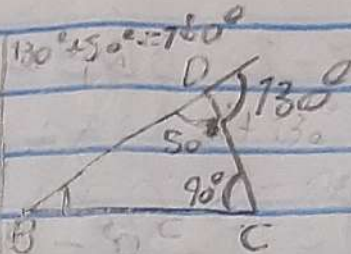 130°+50°=180°
D 130°
50
90°
B C